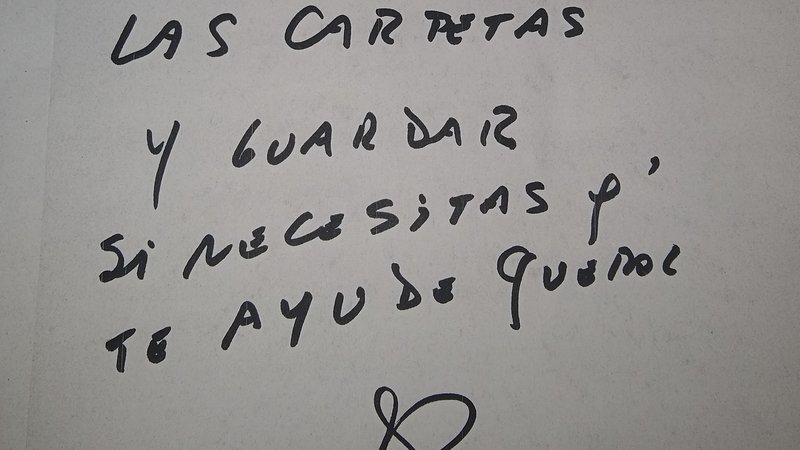 LAS CARPETAS
Y GUARDAR
Si NECESiTAS q'
TE AYUDE QUEROL